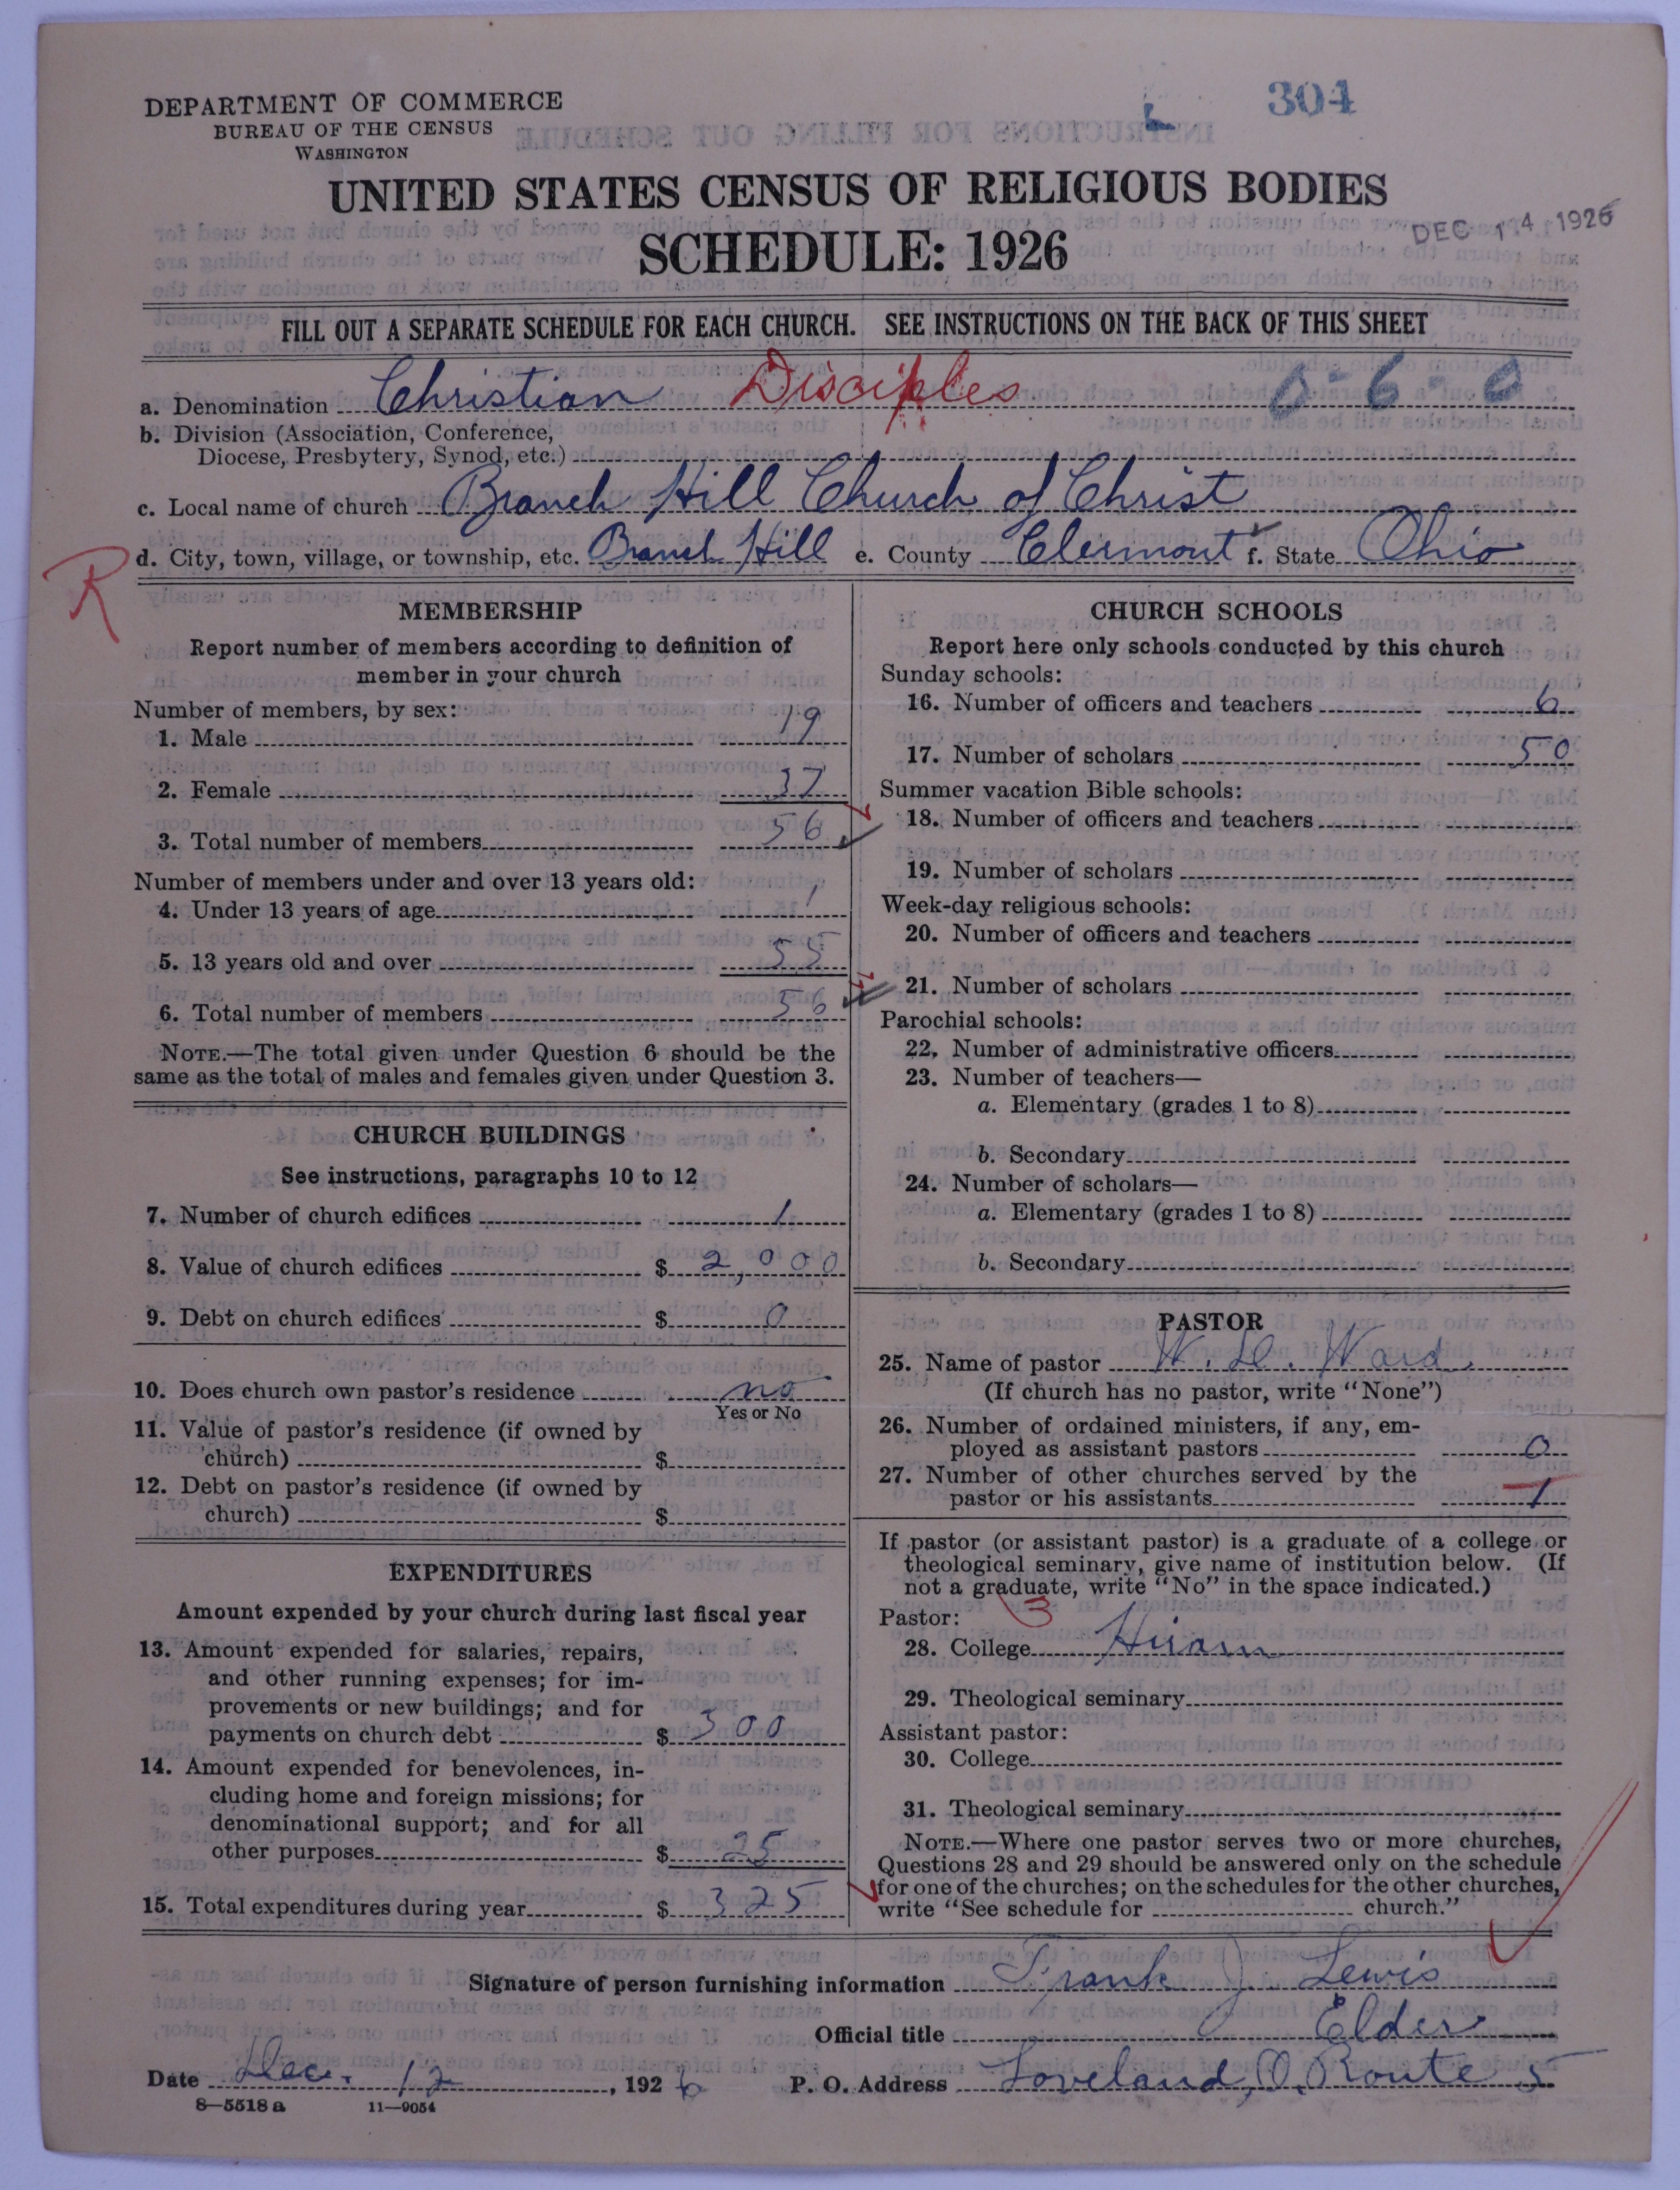 304
L
DEPARTMENT OF COMMERCE
BUREAU OF THE CENSUS
WASHINGTON
UNITED STATES CENSUS OF RELIGIOUS BODIES
SCHEDULE: 1926
DEC 14 1926
FILL OUT A SEPARATE SCHEDULE FOR EACH CHURCH. SEE INSTRUCTIONS ON THE BACK OF THIS SHEET
a. Denomination Christian Disciples 0-6-0
b. Division (Association, Conference,
Diocese, Presbytery, Synod, etc.)
c. Local name of church Branch Hill Church of Christ
R
d. City, town, village, or township, etc. Branch Hill e. County Clermont f. State Ohio
MEMBERSHIP
Report number of members according to definition of
member in your church
Number of members, by sex:
1. Male 19
2. Female 37
3. Total number of members 56
Number of members under and over 13 years old:
4. Under 13 years of age 1
5. 13 years old and over 55
6. Total number of members 56
NOTE.—The total given under Question 6 should be the
same as the total of males and females given under Question 3.
CHURCH BUILDINGS
See instructions, paragraphs 10 to 12
7. Number of church edifices 1
8. Value of church edifices $ 2,000
9. Debt on church edifices $ 0
10. Does church own pastor's residence no
Yes or No
11. Value of pastor's residence (if owned by
church) $
12. Debt on pastor's residence (if owned by
church) $
EXPENDITURES
Amount expended by your church during last fiscal year
13. Amount expended for salaries, repairs,
and other running expenses; for im-
provements or new buildings; and for
payments on church debt $ 300
14. Amount expended for benevolences, in-
cluding home and foreign missions; for
denominational support; and for all
other purposes $ 25
15. Total expenditures during year $ 325
CHURCH SCHOOLS
Report here only schools conducted by this church
Sunday schools:
16. Number of officers and teachers 6
17. Number of scholars 50
Summer vacation Bible schools:
18. Number of officers and teachers
19. Number of scholars
Week-day religious schools:
20. Number of officers and teachers
21. Number of scholars
Parochial schools:
22. Number of administrative officers
23. Number of teachers—
a. Elementary (grades 1 to 8)
b. Secondary
24. Number of scholars—
a. Elementary (grades 1 to 8)
b. Secondary
PASTOR
25. Name of pastor W. Ward
(If church has no pastor, write "None")
26. Number of ordained ministers, if any, em-
ployed as assistant pastors 0
27. Number of other churches served by the
pastor or his assistants 1
If pastor (or assistant pastor) is a graduate of a college or
theological seminary, give name of institution below. (If
not a graduate, write "No" in the space indicated.)
Pastor: 3
28. College Hiram
29. Theological seminary
Assistant pastor:
30. College
31. Theological seminary
NOTE.—Where one pastor serves two or more churches,
Questions 28 and 29 should be answered only on the schedule
for one of the churches; on the schedules for the other churches,
write "See schedule for church."
Signature of person furnishing information Frank J. Lewis
Official title Elder
Date Dec. 12, 1926 P. O. Address Loveland, O. Route 5
8—5518 a 11—9054